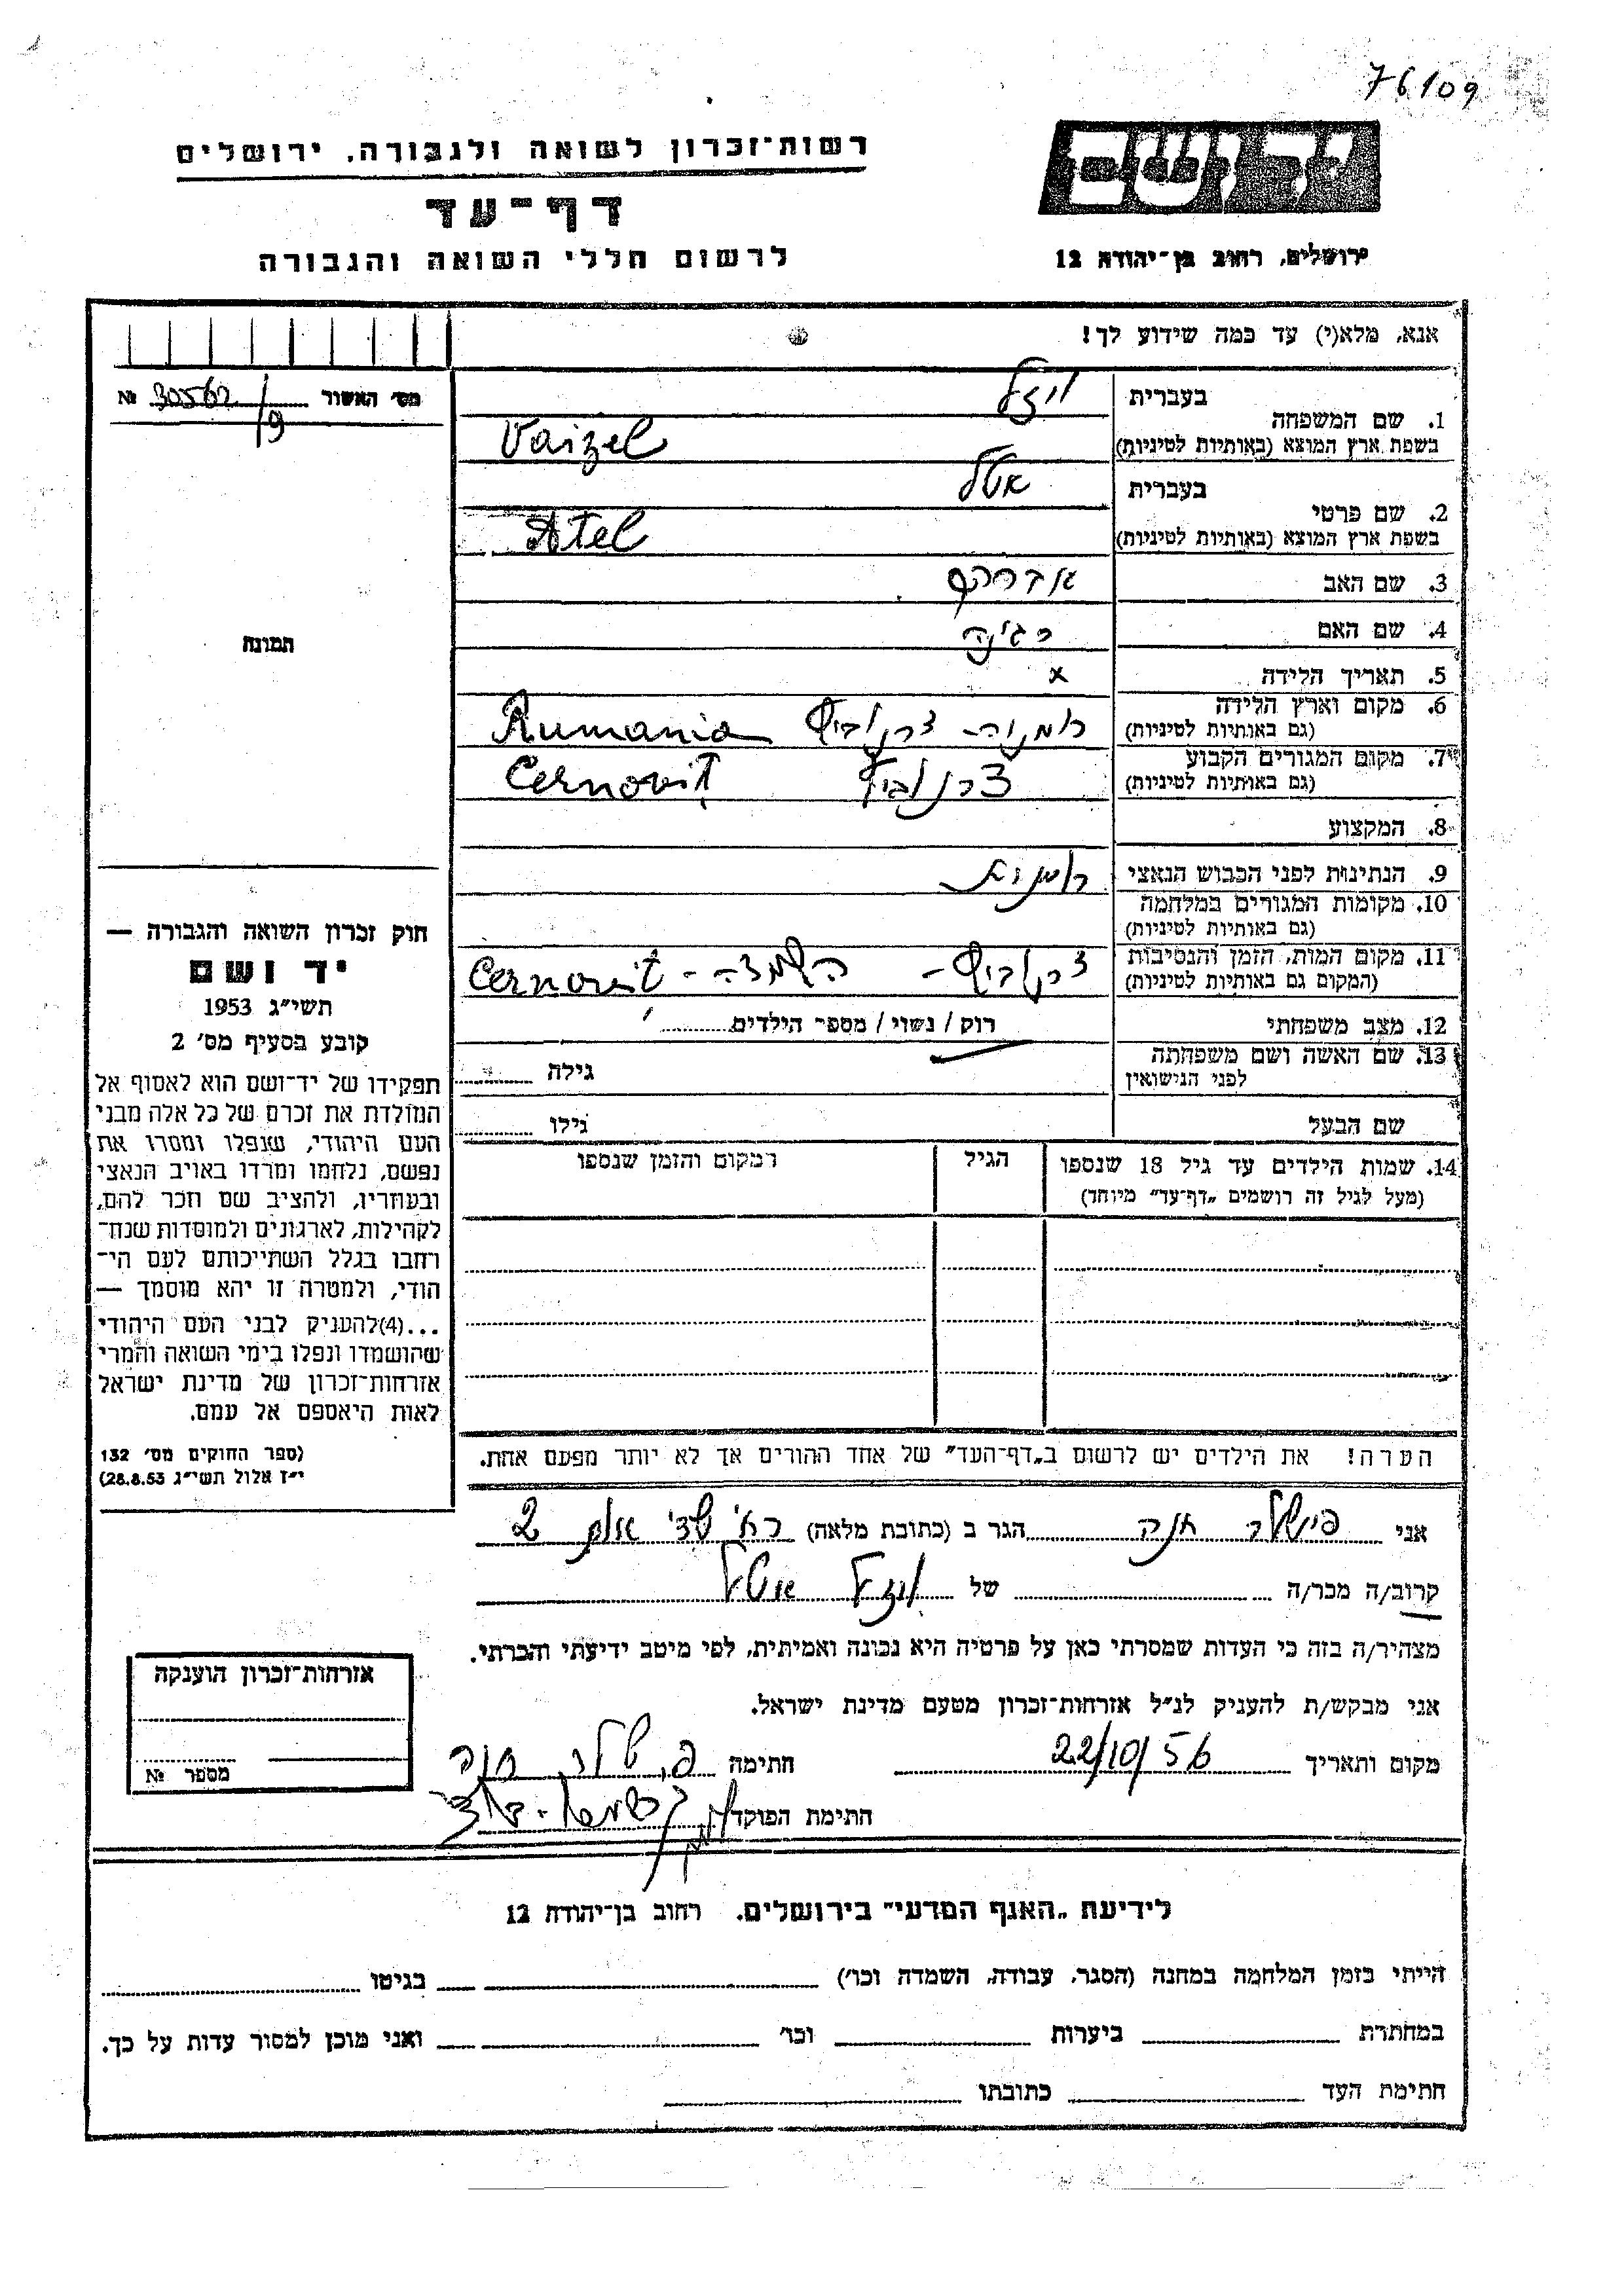 76109
יד ושם
רשות־זכרון לשואה ולגבורה, ירושלים
דף־עד
לרשום חללי השואה והגבורה
ירושלים, רחוב בן־יהודה 12
אנא, מלא(י) עד כמה שידוע לך!
מס׳ האשור № 30562/9
תמונה
1. שם המשפחה
בעברית ויזל
בשפת ארץ המוצא (באותיות לטיניות) Vaizel
2. שם פרטי
בעברית אטל
בשפת ארץ המוצא (באותיות לטיניות) Atel
3. שם האב אברהם
4. שם האם רגינה
5. תאריך הלידה x
6. מקום וארץ הלידה
(גם באותיות לטיניות) רומניה- צרנוביץ Rumania
7. מקום המגורים הקבוע
(גם באותיות לטיניות) צרנוביץ Cernoviț
8. המקצוע
9. הנתינות לפני הכבוש הנאצי רומנית
10. מקומות המגורים במלחמה
(גם באותיות לטיניות)
11. מקום המות, הזמן והנסיבות
(המקום גם באותיות לטיניות) צרנוביץ - השמדה - Cernovit
12. מצב משפחתי רוק / נשוי / מספר הילדים
13. שם האשה ושם משפחתה
לפני הנישואין
גילה
שם הבעל גילו
14. שמות הילדים עד גיל 18 שנספו
(מעל לגיל זה רושמים „דף־עד״ מיוחד)
הגיל
המקום והזמן שנספו
הערה! את הילדים יש לרשום ב„דף־העד״ של אחד ההורים אך לא יותר מפעם אחת.
חוק זכרון השואה והגבורה —
יד ושם
תשי״ג 1953
קובע בסעיף מס׳ 2
תפקידו של יד־ושם הוא לאסוף אל
המולדת את זכרם של כל אלה מבני
העם היהודי, שנפלו ומסרו את
נפשם, נלחמו ומרדו באויב הנאצי
ובעוזריו, ולהציב שם וזכר להם,
לקהילות, לארגונים ולמוסדות שנח־
רחבו בגלל השתייכותם לעם הי־
הודי, ולמטרה זו יהא מוסמך —
...(4)להעניק לבני העם היהודי
שהושמדו ונפלו בימי השואה והמרי
אזרחות־זכרון של מדינת ישראל
לאות היאספם אל עמם.
(ספר החוקים מס׳ 132
י״ז אלול תשי״ג 28.8.53)
אני פישלר חנה הגר ב (כתובת מלאה) 2
קרוב/ה מכר/ה של ויזל אטל
מצהיר/ה בזה כי העדות שמסרתי כאן על פרטיה היא נכונה ואמיתית, לפי מיטב ידיעתי והכרתי.
אני מבקש/ת להעניק לנ״ל אזרחות־זכרון מטעם מדינת ישראל.
מקום ותאריך 22/10/56 חתימה פישלר חנה
חתימת הפוקד
אזרחות־זכרון הוענקה
מספר №
לידיעת „האגף המדעי״ בירושלים. רחוב בן־יהודה 12
הייתי בזמן המלחמה במחנה (הסגר, עבודה, השמדה וכו׳) בגיטו
במחתרת ביערות וכו׳ ואני מוכן למסור עדות על כך.
חתימת העד כתובתו